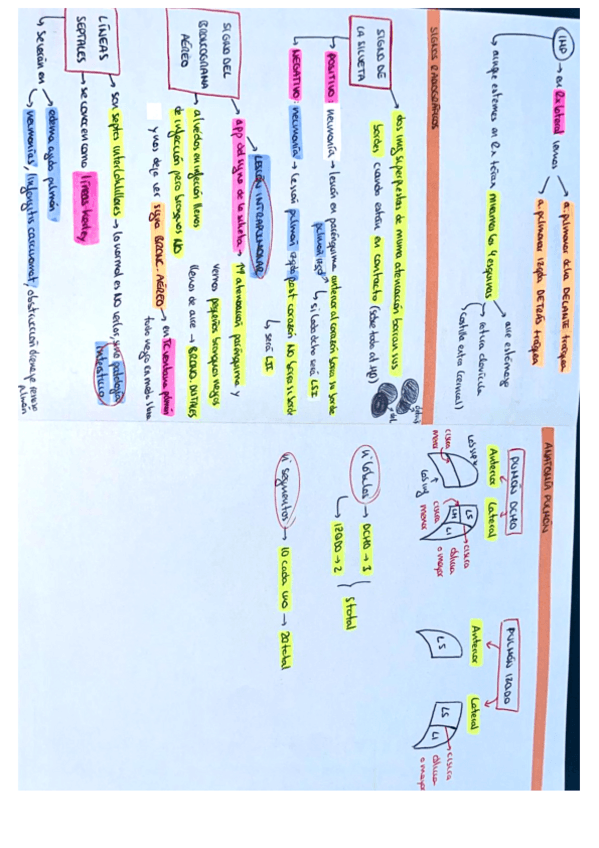 IMP → en Rx lateral vemos
a. pulmonar dcha DELANTE tráquea
a. pulmonar izqda DETRÁS tráquea
aunque estemos en Rx tórax miramos las 4 esquinas
aire
rotura clavícula
costilla extra (cervical)
SIGNOS RADIOGRÁFICOS
SIGNO DE
LA SILUETA
dos img superpuestas de misma atenuación borran sus
bordes cuando están en contacto (sobre todo al
POSITIVO: neumonía → lesión en parénquima anterior al corazón borra su borde
pulmón izqd
si lado dcho será LSI
NEGATIVO: neumonía → lesión pulmón izqdo post corazón NO borra su borde
será LI
SIGNO DEL
BRONCOGRAMA
AÉREO
LESIÓN INTRAPULMONAR
app del signo de la silueta → atenuación parénquima y
vemos pequeños bronquios negros
alvéolos en infección llenos
llenos de aire → BRONQ. DISTALES
de infección pero bronquios NO
y nos deja ver signo BRONC. AÉREO → en TC ventana pulmón
todo negro en medio
LÍNEAS
SEPTALES
son septos interlobulillares → lo normal es NO verlos, sino patología
intersticio
se conocen como líneas Kerley
se verán en
edema agudo pulmón
neumonías, linfangitis carcinomat, obstrucción drenaje venoso
pulmón
ANATOMÍA PULMÓN
PULMÓN DCHO
Anterior
Lateral
cisura
menor
LS
LM
LI
cisura
menor
cisura
oblicua
o mayor
PULMÓN IZQDO
Anterior
Lateral
LS
LS
LI
cisura
oblicua
o mayor
Nº lóbulos
DCHO → 3
IZQDO → 2
5 total
Nº segmentos → 10 cada uno → 20 total